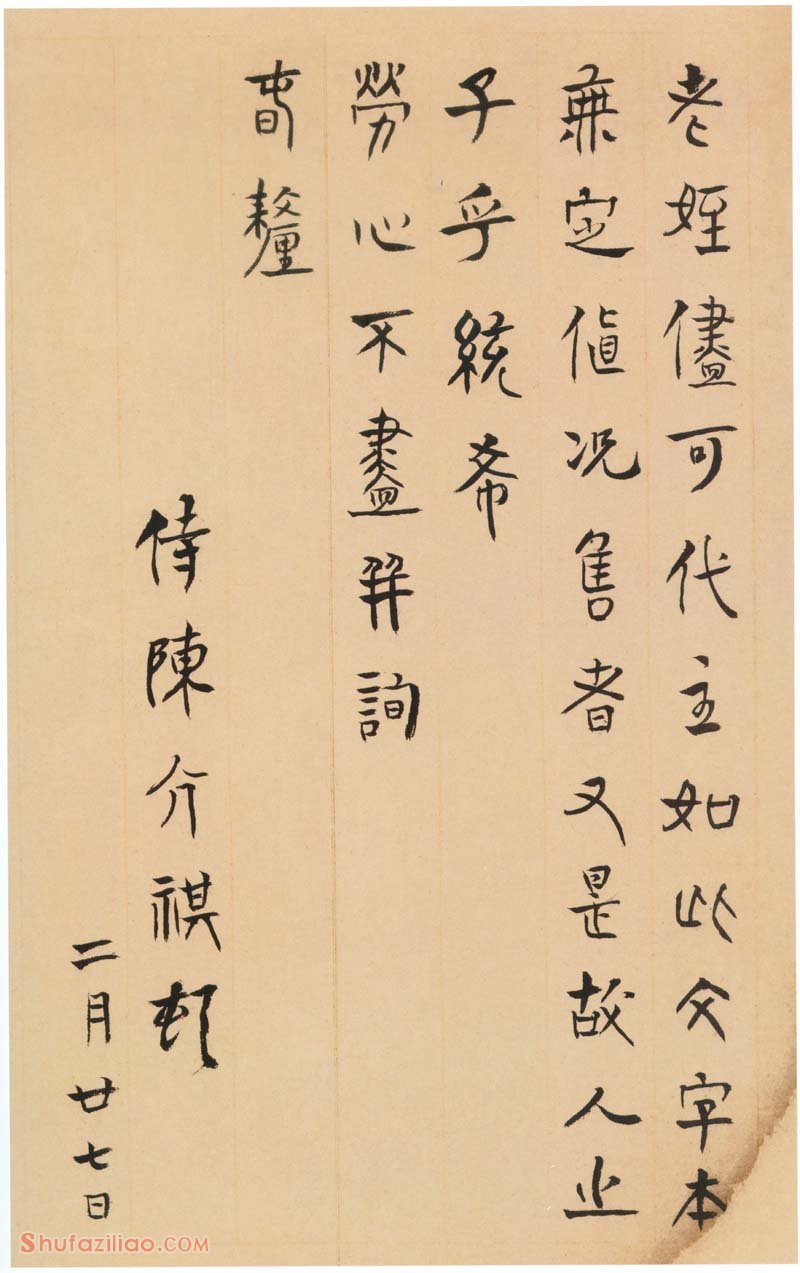 老姪儘可代主如此文字本
無定值况售者又是故人之
子乎統希
勞心不盡幷詢
春釐
侍陳介祺頓
二月廿七日
Shufaziliao.COM